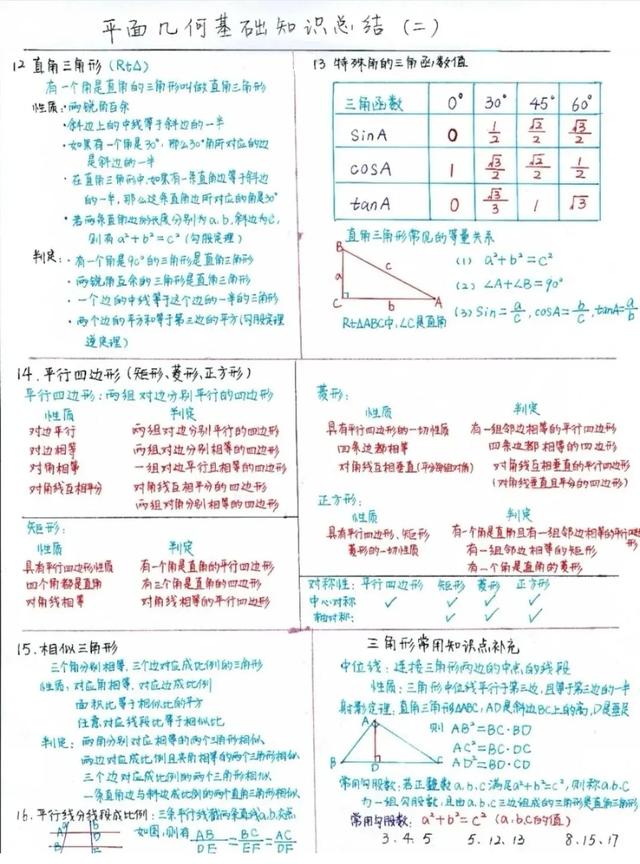 平面几何基础知识总结(二)
12 直角三角形(Rt△)
有一个角是直角的三角形叫做直角三角形
性质:·两锐角互余
·斜边上的中线等于斜边的一半
·如果有一个角是30°,那么30°角所对应的边
是斜边的一半
·在直角三角形中,如果有一条直角边等于斜边
的一半,那么这条直角边所对应的角是30°
·若两条直角边的长度分别为a,b,斜边为c,
则有a²+b²=c²(勾股定理)
判定:·有一个角是90°的三角形是直角三角形
·两锐角互余的三角形是直角三角形
·一个边的中线等于这个边的一半的三角形
·两个边的平方和等于第三边的平方(勾股定理
逆定理)
13 特殊角的三角函数值
三角函数 0° 30° 45° 60°
SinA 0 1/2 √2/2 √3/2
cosA 1 √3/2 √2/2 1/2
tanA 0 √3/3 1 √3
直角三角形常见的等量关系
B
a c
C b A
Rt△ABC中,∠C是直角
(1) a²+b²=c²
(2) ∠A+∠B=90°
(3) Sin=a/c, cosA=b/c, tanA=a/b
14.平行四边形(矩形、菱形、正方形)
平行四边形:两组对边分别平行的四边形
性质 判定
对边平行 两组对边分别平行的四边形
对边相等 两组对边分别相等的四边形
对角相等 一组对边平行且相等的四边形
对角线互相平分 对角线互相平分的四边形
两组对角分别相等的四边形
矩形:
性质 判定
具有平行四边形性质 有一个角是直角的平行四边形
四个角都是直角 有三个角是直角的四边形
对角线相等 对角线相等的平行四边形
菱形:
性质 判定
具有平行四边形的一切性质 有一组邻边相等的平行四边形
四条边都相等 四条边都相等的四边形
对角线互相垂直(平分每组对角) 对角线互相垂直的平行四边形
(对角线垂直且平分的四边形)
正方形:
性质 判定
具有平行四边形、矩形 有一个角是直角且有一组邻边相等的平行四边形
菱形的一切性质 有一组邻边相等的矩形
有一个角是直角的菱形
对称性:平行四边形 矩形 菱形 正方形
中心对称 ✓ ✓ ✓ ✓
轴对称: ✓ ✓ ✓
15.相似三角形
三个角分别相等,三个边对应成比例的三角形
性质:对应角相等,对应边成比例
面积比等于相似比的平方
任意对应线段比等于相似比
判定:两角分别对应相等的两个三角形相似
两边对应成比例且夹角相等的两个三角形相似
三个边对应成比例的两个三角形相似
一条直角边与斜边成比例的两个直角三角形相似
16.平行线分线段成比例:三条平行线截两条直线a,b,交点
如图,则有 AB/DE=BC/EF=AC/DF
三角形常用知识点补充
中位线:连接三角形两边的中点的线段
性质:三角形中位线平行于第三边,且等于第三边的一半
射影定理:直角三角形△ABC,AD是斜边BC上的高,D是垂足
A
B D C
则 AB²=BC·BD
AC²=BC·DC
AD²=BD·CD
常用勾股数:若正整数a,b,c满足a²+b²=c²,则称a,b,c
为一组勾股数,且由a,b,c三边组成的三角形是直角三角形
常用勾股数:a²+b²=c²(a,b,c的值)
3.4.5 5.12.13 8.15.17